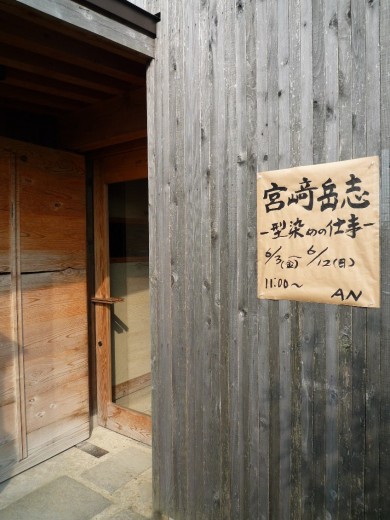 宮﨑岳志
-型染めの仕事-
6/3(金) 6/12(日)
11:00〜
AN